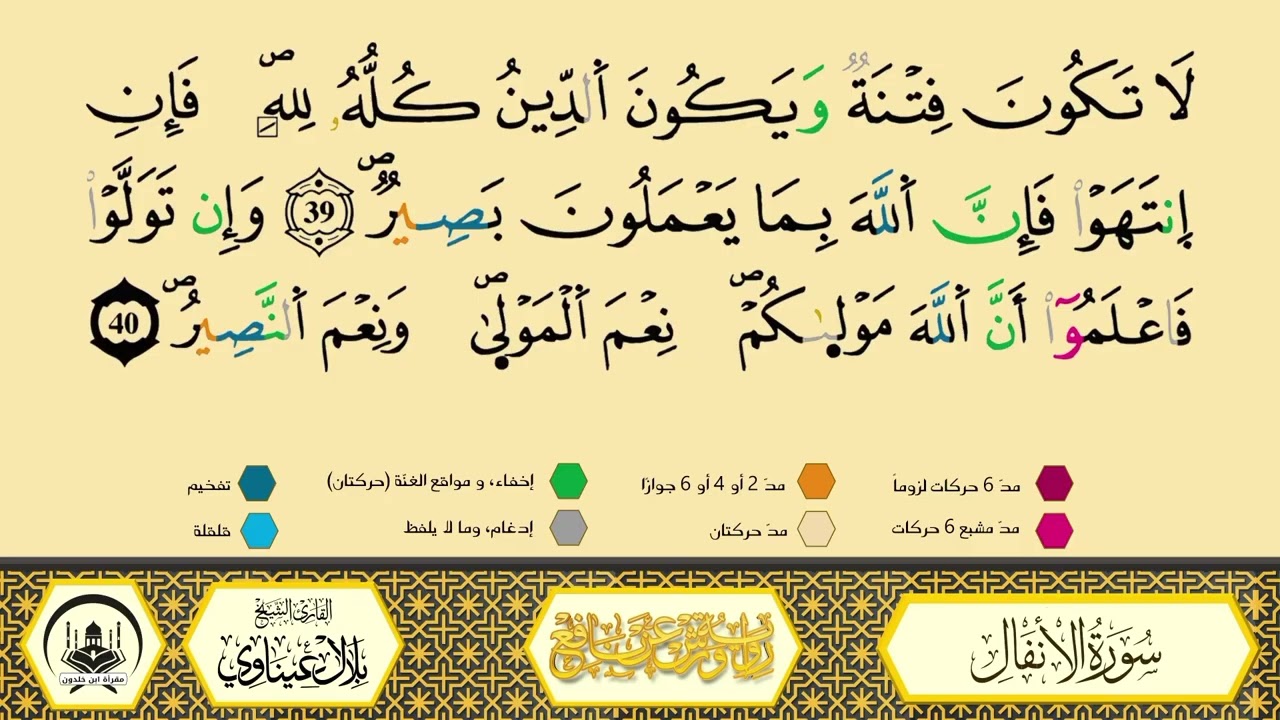 لَا تَكُونَ فِتْنَةٌ وَيَكُونَ اَ۬لدِّينُ كُلُّهُۥ لِلهِۖ فَإِنِ
اِ۪نتَهَوْاْ فَإِنَّ اَ۬للَّهَ بِمَا يَعْمَلُونَ بَصِيرٌۖ 39 وَإِن تَوَلَّوْاْ
فَاعْلَمُوٓاْ أَنَّ اَ۬للَّهَ مَوْل۪يٰكُمْۖ نِعْمَ اَ۬لْمَوْل۪يٰۖ وَنِعْمَ اَ۬لنَّصِيرُۖ 40
مدّ 6 حركات لزوماً مدّ 2 أو 4 أو 6 جوازًا إخفاء، و مواقع الغنّة (حركتان) تفخيم
مدّ مشبع 6 حركات مدّ حركتان إدغام، وما لا يلفظ قلقلة
سُورَةُ الأَنفَالِ
رواية ورش عن نافع
القارئ الشيخ
بلال عيناوي
مقرأة ابن خلدون